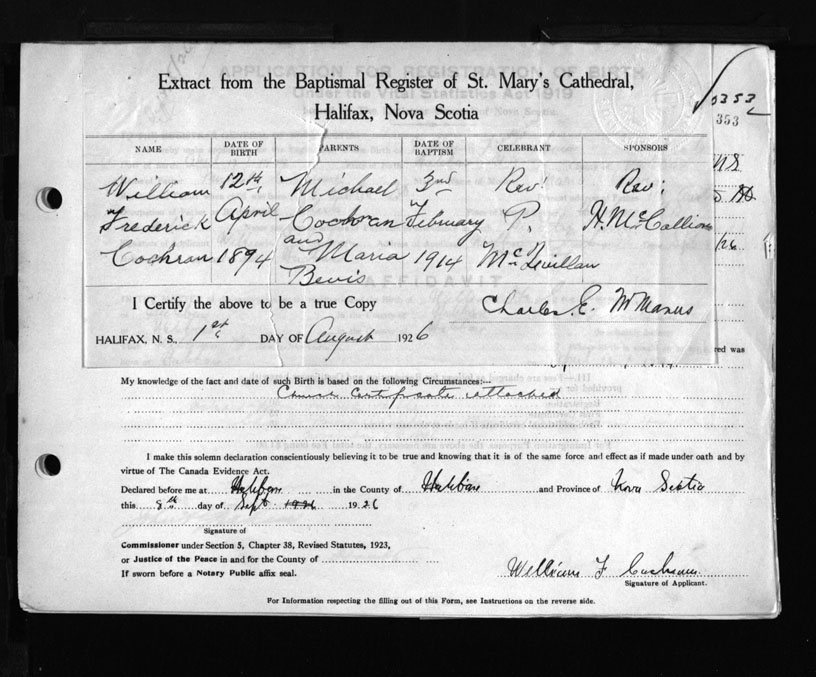 Extract from the Baptismal Register of St. Mary's Cathedral,
Halifax, Nova Scotia
5353
353
NAME DATE OF BIRTH PARENTS DATE OF BAPTISM CELEBRANT SPONSORS
William 12th, Michael 3rd Rev: Rev:
Frederick April Cochran February P. H. McCallion
Cochran 1894 and Maria 1914
Bevis
I Certify the above to be a true Copy Charles E. McManus
HALIFAX, N. S., 1st DAY OF August 1926
red was
My knowledge of the fact and date of such Birth is based on the following Circumstances:—
Church Certificate attached
I make this solemn declaration conscientiously believing it to be true and knowing that it is of the same force and effect as if made under oath and by
virtue of The Canada Evidence Act.
Declared before me at Halifax in the County of Halifax and Province of Nova Scotia
this 8th day of Sept 1926 1926
Signature of
Commissioner under Section 5, Chapter 38, Revised Statutes, 1923,
or Justice of the Peace in and for the County of
If sworn before a Notary Public affix seal.
William F Cochran
Signature of Applicant.
For Information respecting the filling out of this Form, see Instructions on the reverse side.